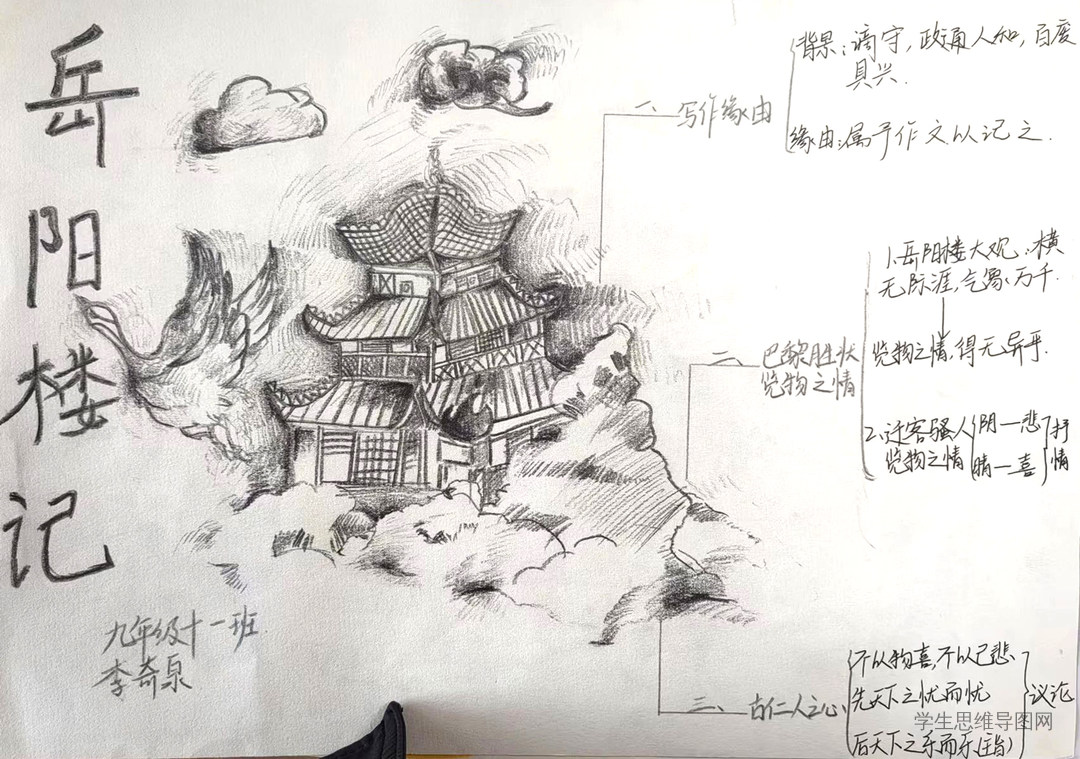 岳阳楼记
九年级十一班
李奇泉
一、写作缘由
背景：谪守，政通人和，百废
具兴.
缘由：属予作文以记之.
二、巴黎胜状
览物之情
1.岳阳楼大观：横
无际涯，气象万千.
览物之情，得无异乎.
2.迁客骚人
览物之情
阴一悲
晴一喜
抒情
三、古仁人之心
不以物喜，不以己悲
先天下之忧而忧
后天下之乐而乐(主旨)
议论
学生思维导图网